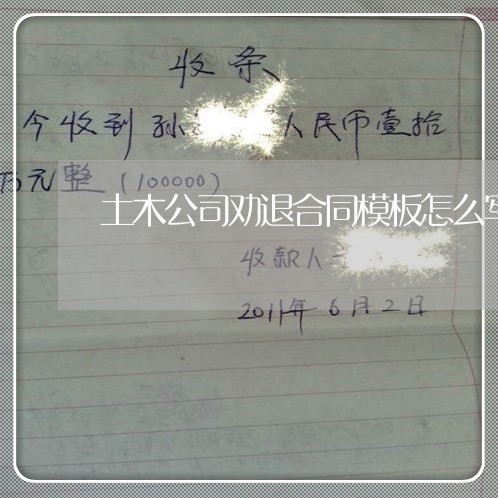 收条
今收到孙 人民币壹拾
万元整（100000）
土木公司劝退合同模板怎么写
收款人
2011年6月2日